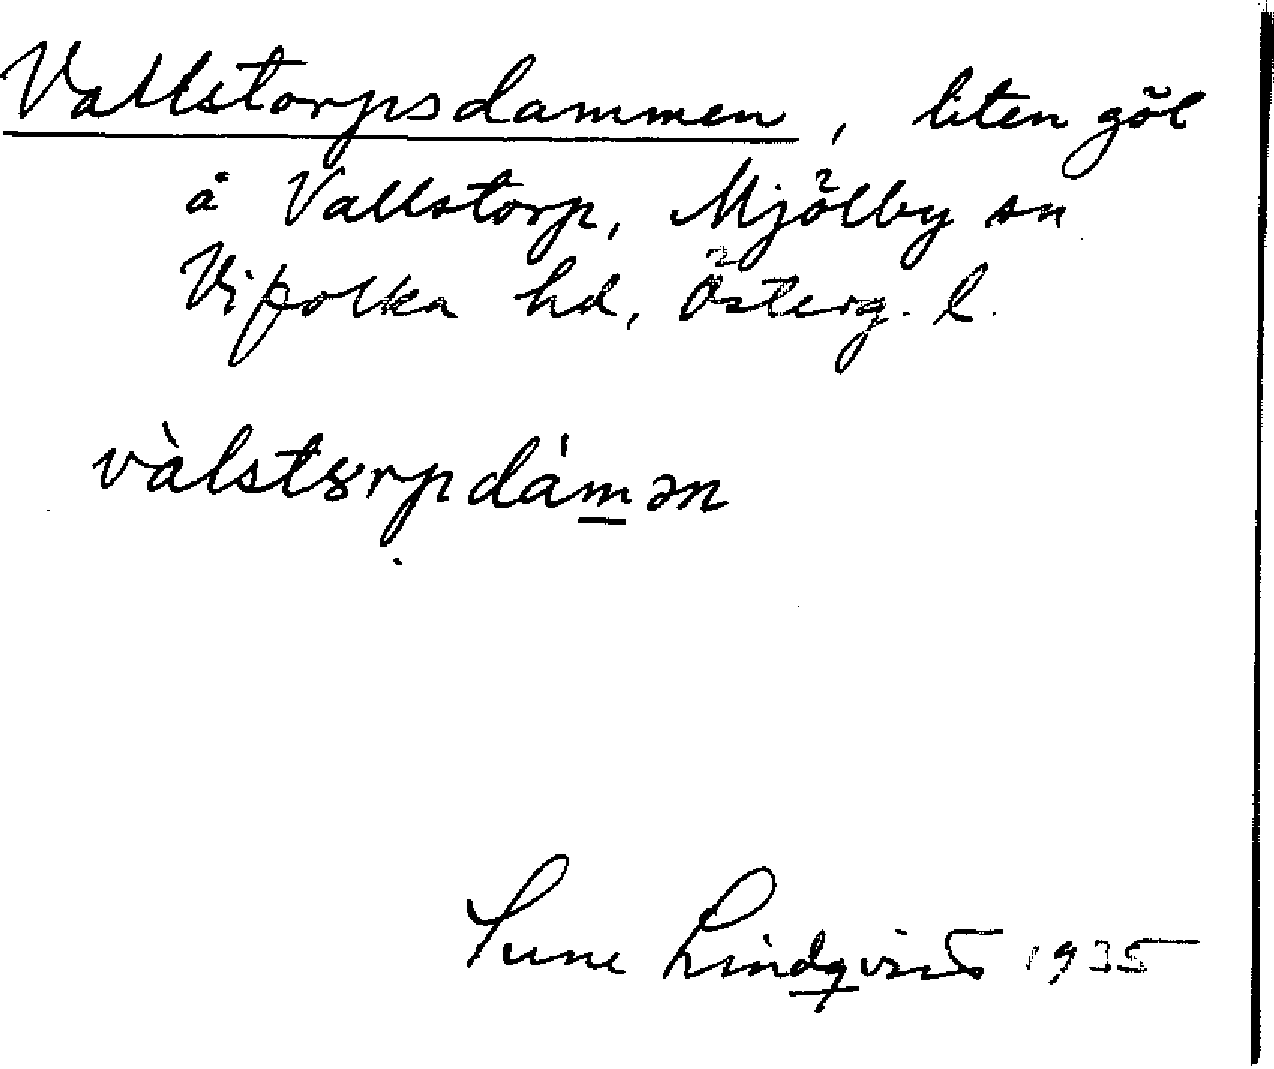 Vallstorpsdammen, liten göl
å Vallstorp, Mjölby sn
Vifolka hd, Österg. l.
vàlstɤrpdámən
Sune Lindqvist 1935